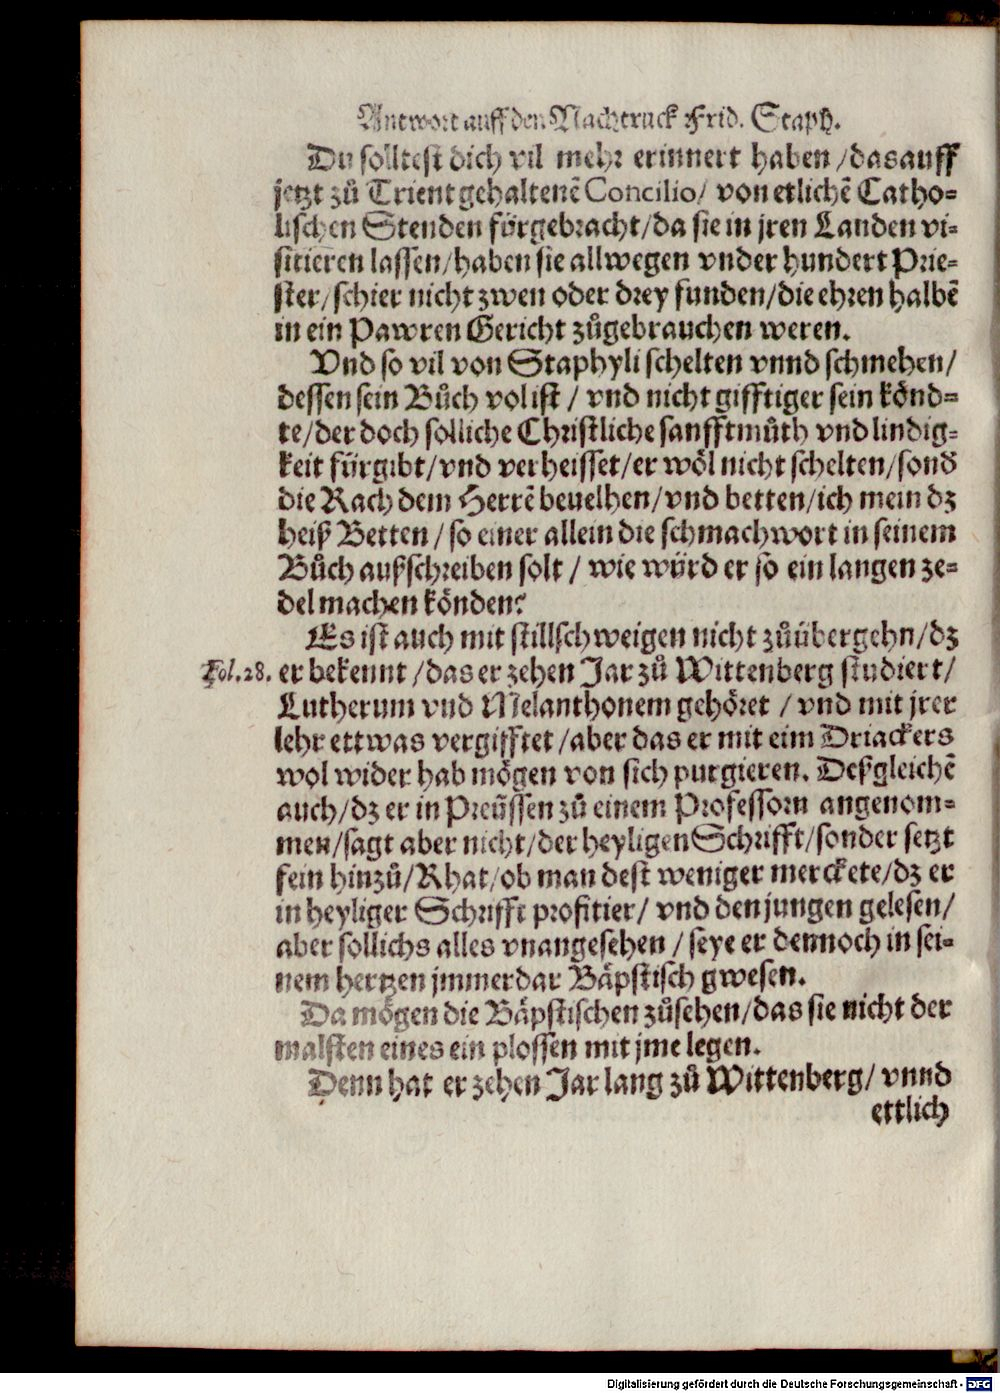 Antwort auff den Nachtruck Frid. Staph.
Du solltest dich vil mehr erinnert haben / das auff
jetzt zů Trient gehaltenē Concilio/ von etlichē Catho⸗
lischen Stenden fürgebracht/da sie in jren Landen vi⸗
sitieren lassen/haben sie allwegen vnder hundert Prie⸗
ster/schier nicht zwen oder drey funden/die ehren halbē
in ein Pawren Gericht zůgebrauchen weren.
Vnd so vil von Staphyli schelten vnnd schmehen/
dessen sein Bůch vol ist / vnd nicht gifftiger sein könd⸗
te/der doch solliche Christliche sanfftmůth vnd lindig⸗
keit fürgibt/vnd verheisset/er wöl nicht schelten/sond̄
die Rach dem Herrē beuelhen/vnd betten/ich mein dz
heiß Betten / so einer allein die schmachwort in seinem
Bůch außschreiben solt / wie würd er so ein langen ze⸗
del machen könden?
Es ist auch mit stillschweigen nicht zůübergehn/dz
Fol.28. er bekennt /das er zehen Jar zů Wittenberg studiert/
Lutherum vnd Melanthonem gehöret / vnd mit jrer
lehr ettwas vergifftet /aber das er mit eim Driackers
wol wider hab mögen von sich purgieren. Deßgleichē
auch/dz er in Preüssen zů einem Professorn angenom⸗
men/sagt aber nicht/der heyligen Schrifft/sonder setzt
fein hinzů/Rhat/ob man dest weniger merckete/dz er
in heyliger Schrifft profitier/ vnd den jungen gelesen/
aber sollichs alles vnangesehen / seye er dennoch in sei⸗
nem hertzen jmmerdar Bäpstisch gwesen.
Da mögen die Bäpstischen zůsehen/das sie nicht der
malsten eines ein plossen mit jme legen.
Denn hat er zehen Jar lang zů Wittenberg/ vnnd
ettlich
Digitalisierung gefördert durch die Deutsche Forschungsgemeinschaft - DFG